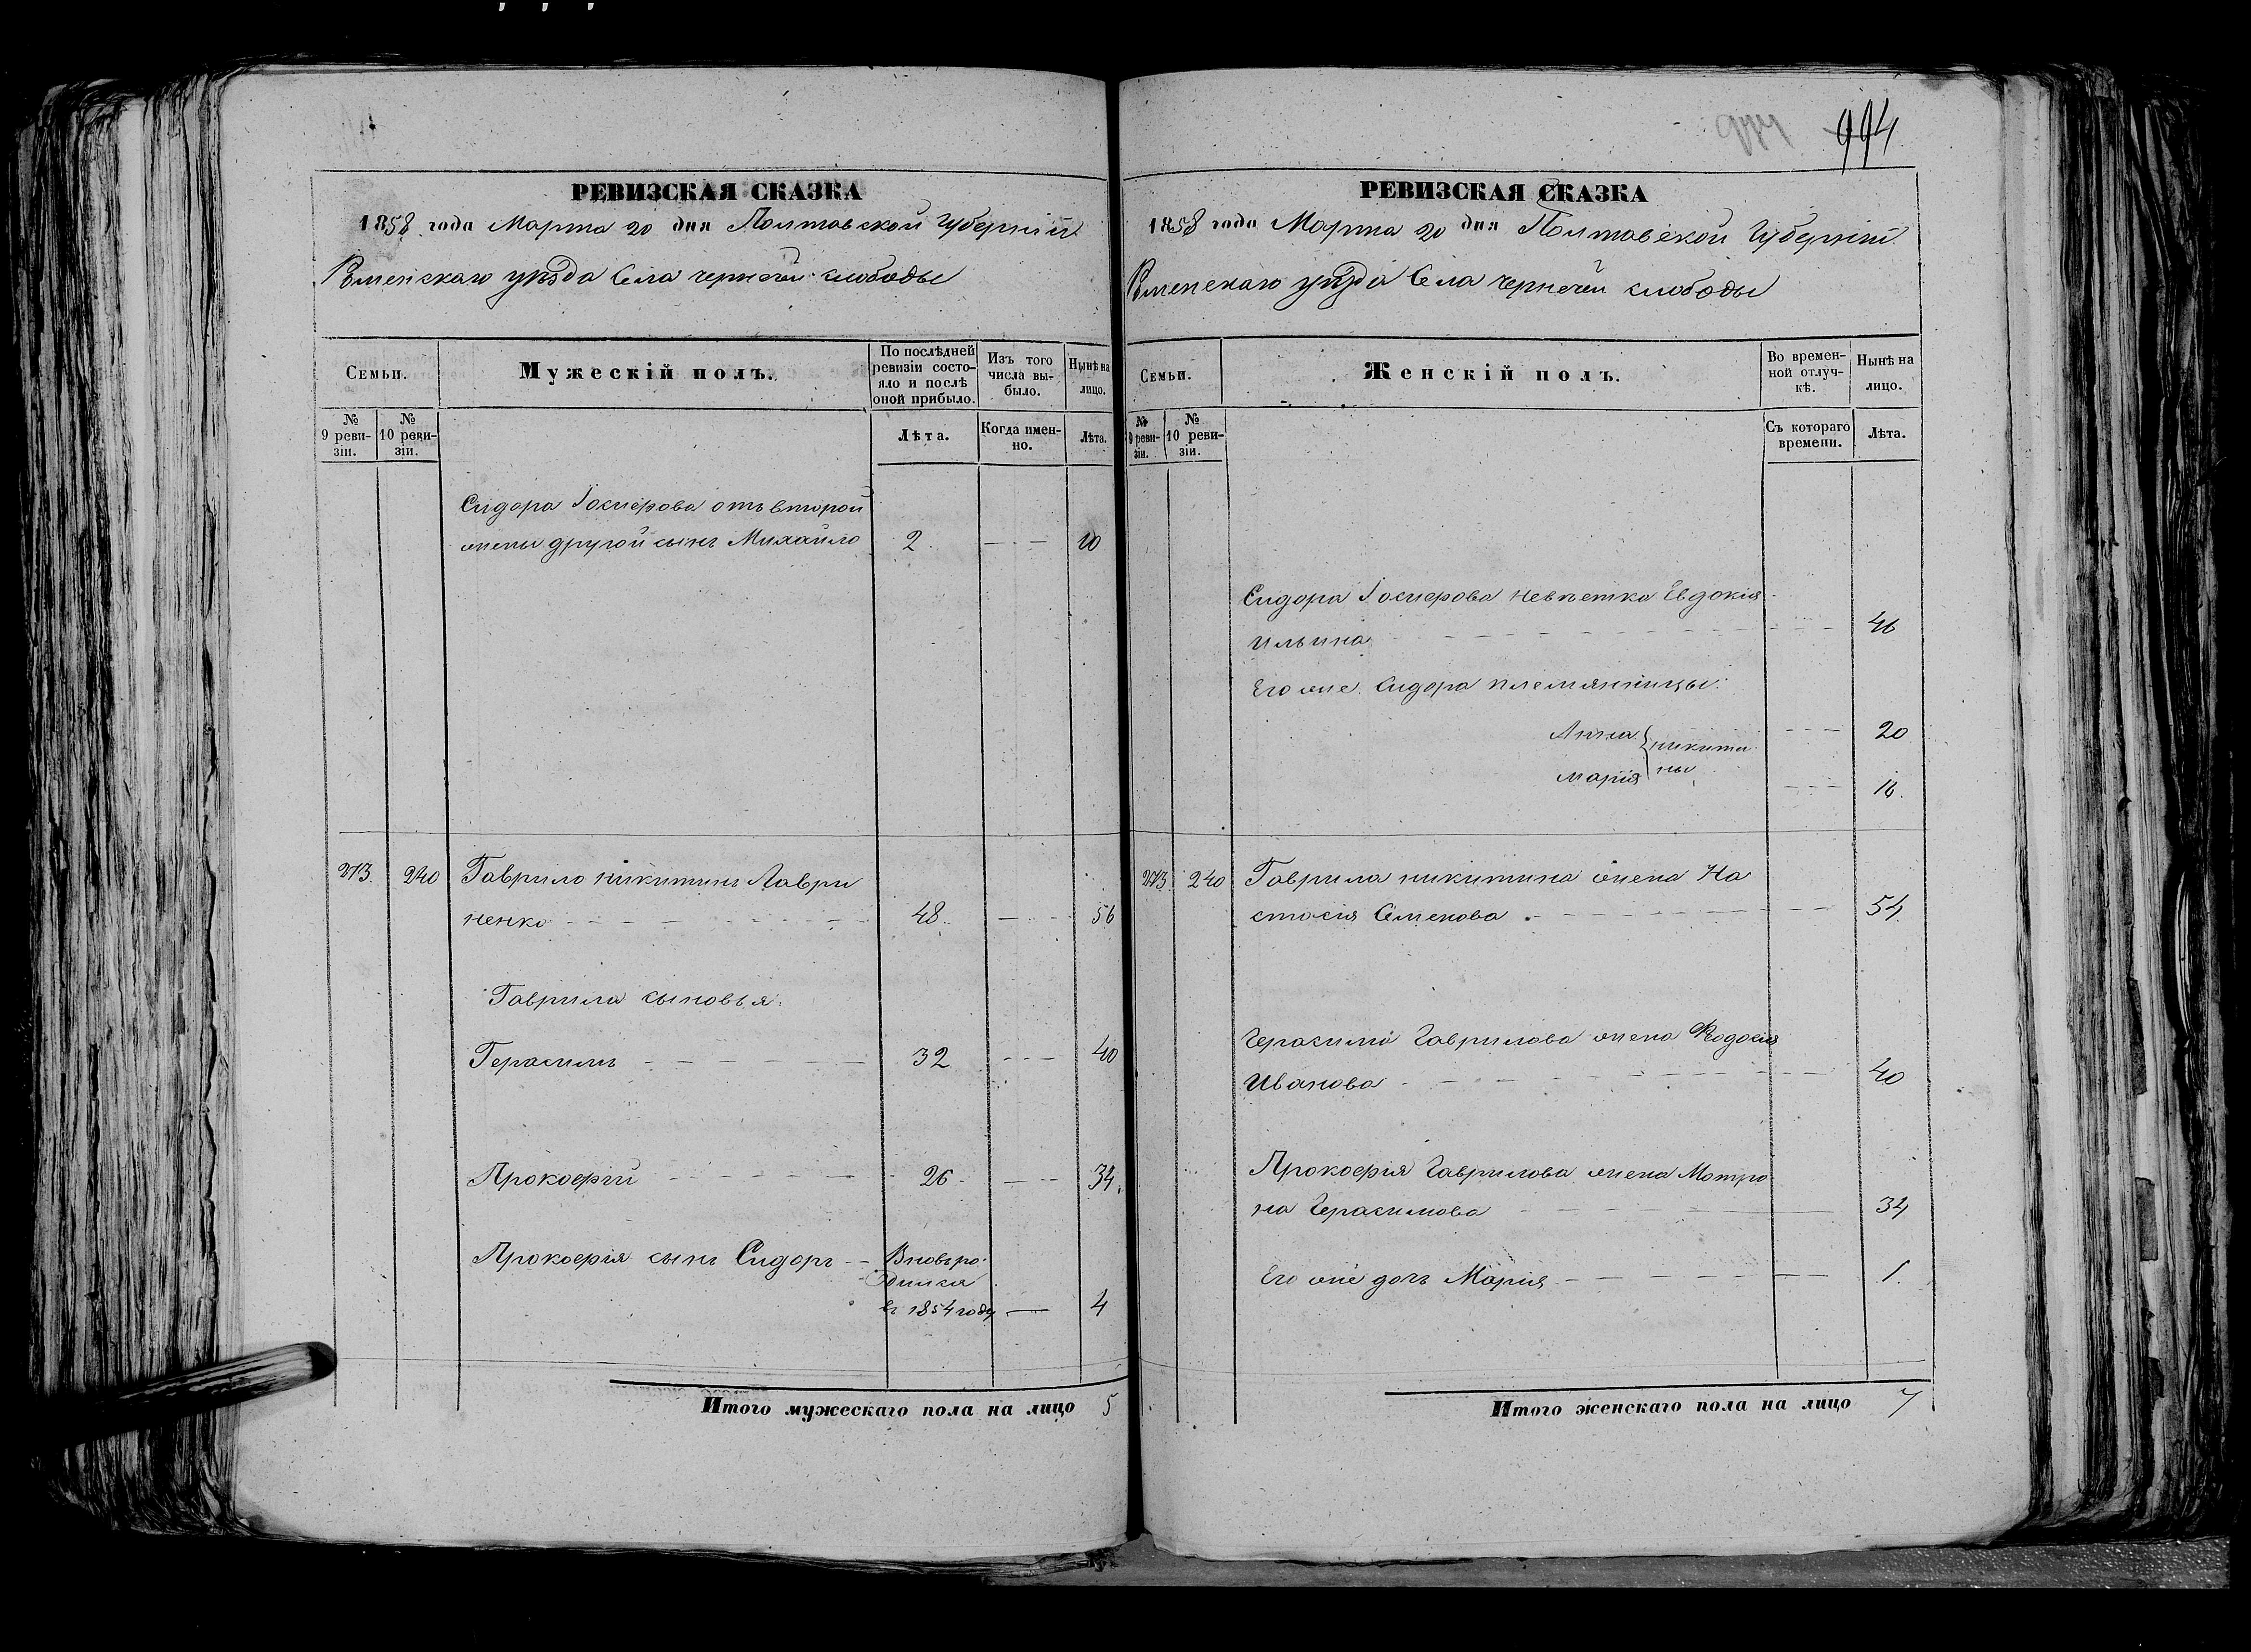 994
РЕВИЗСКАЯ СКАЗКА
1858 года Марта 20 дня Полтавской Губерніи
Роменскаго уѣзда Села чернечей слободы
Семьи.
Мужескій полъ.
По послѣдней ревизіи состояло и послѣ оной прибыло.
Изъ того числа выбыло.
Нынѣ на лицо.
№ 9 ревизіи.
№ 10 ревизіи.
Лѣта.
Когда именно.
Лѣта.
Сидора отъ второй
жены другой сынъ Михайло 2 10
273. 240 Гаврило никитинъ Лаври
ненко 48 56
Гаврила сыновья:
Герасимъ 32 40
Прокофій 26 34
Прокофія сынъ Сидоръ Вновьро
дился
въ 1854 году 4
Итого мужескаго пола на лицо 5
РЕВИЗСКАЯ СКАЗКА
1858 года Марта 20 дня Полтавской Губерніи
Роменскаго уѣзда Села чернечей слободы
Семьи.
Женскій полъ.
Во временной отлучкѣ.
Нынѣ на лицо.
№ 9 ревизіи.
№ 10 ревизіи.
Съ котораго времени.
Лѣта.
Сидора невѣстка Евдокія
Ильина 46
Его же Сидора племянницы:
Анна 20
никити
ны
Марія 16
273 240 Гаврила никитина жена На
стасія Семенова 54
Герасима Гаврилова жена Федосія
Иванова 40
Прокофія Гаврилова жена Мотро
на Герасимова 34
Его же дочь Марія 1
Итого женскаго пола на лицо 7